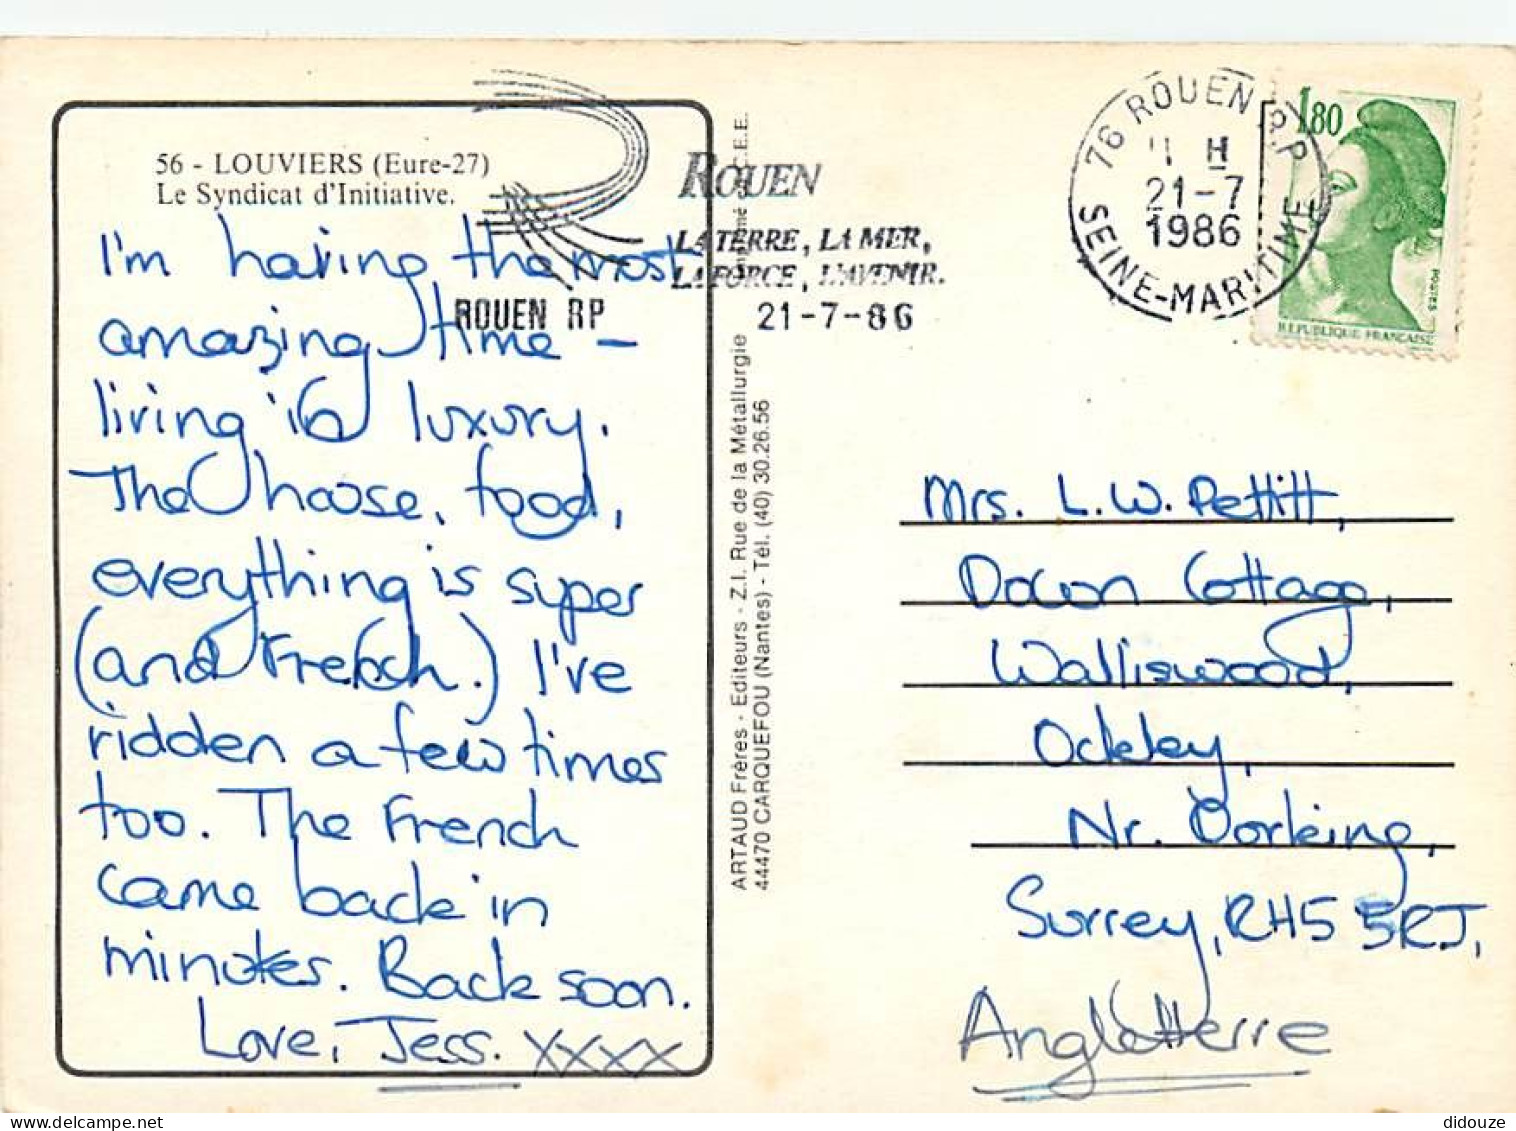 56 - LOUVIERS (Eure-27)
Le Syndicat d'Initiative.
I'm having the most
amazing time -
living in luxury.
The house, food,
everything is super
(and French.) I've
ridden a few times
too. The French
came back in
minutes. Back soon.
Love, Jess. xxxx
ROUEN
LA TERRE, LA MER,
LA FORCE, L'AVENIR.
ROUEN RP
21-7-86
76 ROUEN R.P
H
21-7
1986
SEINE-MARITIME
1,80
POSTES
REPUBLIQUE FRANÇAISE
C.E.E.
ARTAUD Frères - Editeurs - Z.I. Rue de la Métallurgie
44470 CARQUEFOU (Nantes) - Tél. (40) 30.26.56
Mrs. L.W. Pettitt,
Down Cottage,
Walliswood,
Ockley,
Nr. Dorking,
Surrey, RH5 5RJ,
Angletterre
didouze